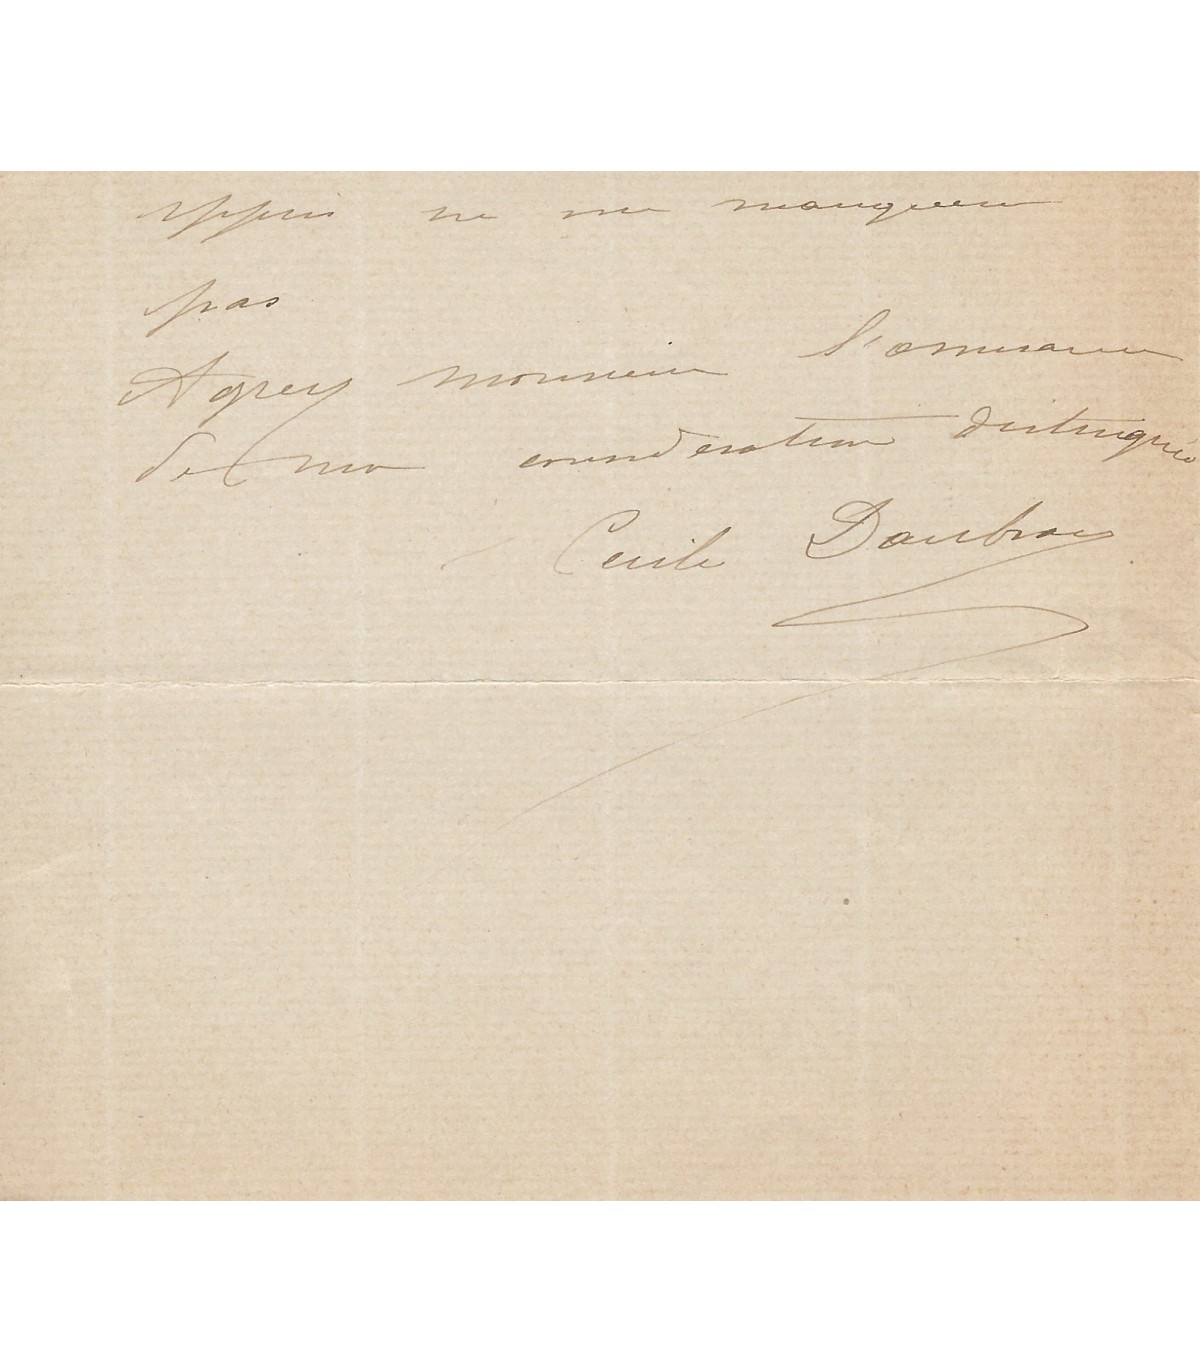 appui ne me manquera
pas
Agreez monsieur l'assurance
de ma consideration distinguée
Cecile Daubray